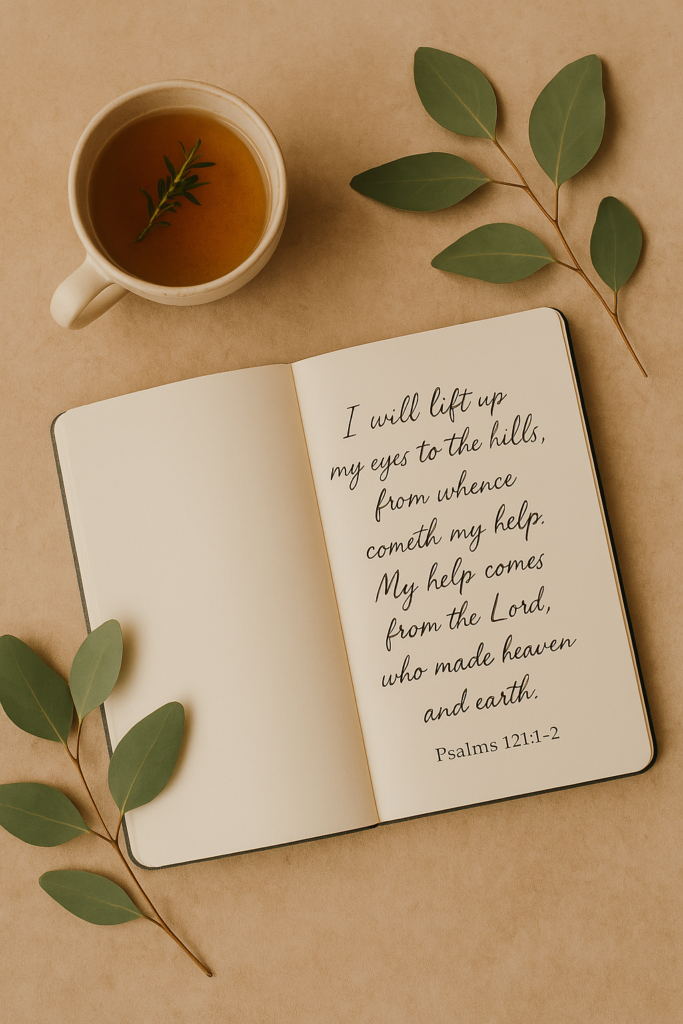 I will lift up
my eyes to the hills,
from whence
cometh my help.
My help comes
from the Lord,
who made heaven
and earth.
Psalms 121:1–2